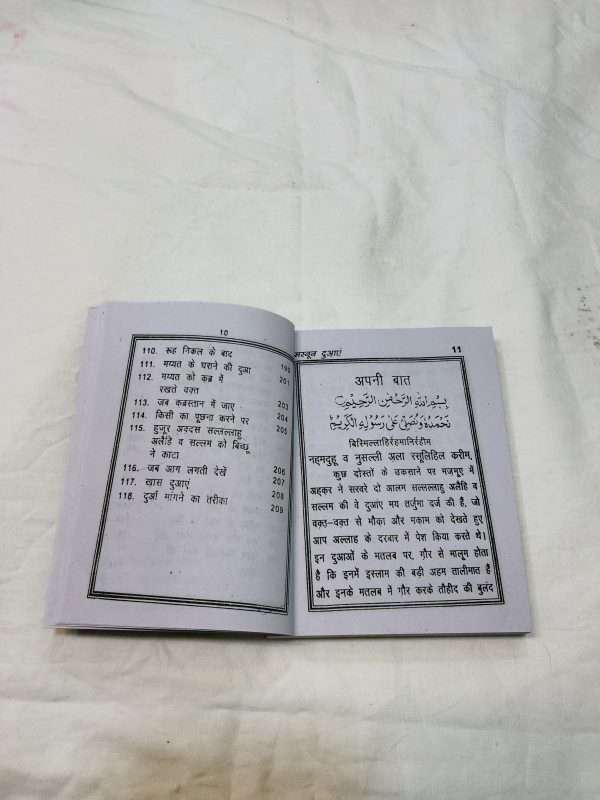 10
110. रूह निकल के बाद
111. मय्यत के घराने की दुआ 199
112. मय्यत को कब्र में 201
रखते वक़्त
113. जब कब्रस्तान में जाए 203
114. किसी का पूछना करने पर 204
115. हुजूर अक़्दस सल्लल्लाहु 205
अलैहि व सल्लम को बिच्छू
ने काटा
116. जब आग लगती देखें 206
117. खास दुआएं 207
118. दुआ मांगने का तरीका 208
209
मस्नून दुआएं 11
अपनी बात
بِسْمِ اللهِ الرَّحْمٰنِ الرَّحِيْمِ
نَحْمَدُهٗ وَنُصَلِّىْ عَلٰى رَسُوْلِهِ الْكَرِيْمِ
बिस्मिल्लाहिर्रहमानिर्रहीम
नहमदुहू व नुसल्ली अला रसूलिहिल करीम,
कुछ दोस्तों के उकसाने पर मजमूए में
अहकर ने सरवरे दो आलम सल्लल्लाहु अलैहि व
सल्लम की वे दुआएं मय तर्जुमा दर्ज की हैं, जो
वक़्त-वक़्त से मौका और मकाम को देखते हुए
आप अल्लाह के दरबार में पेश किया करते थे।
इन दुआओं के मतलब पर, ग़ौर से मालूम होता
है कि इनमें इस्लाम की बड़ी अहम तालीमात हैं
और इनके मतलब में ग़ौर करके तौहीद की बुलंद